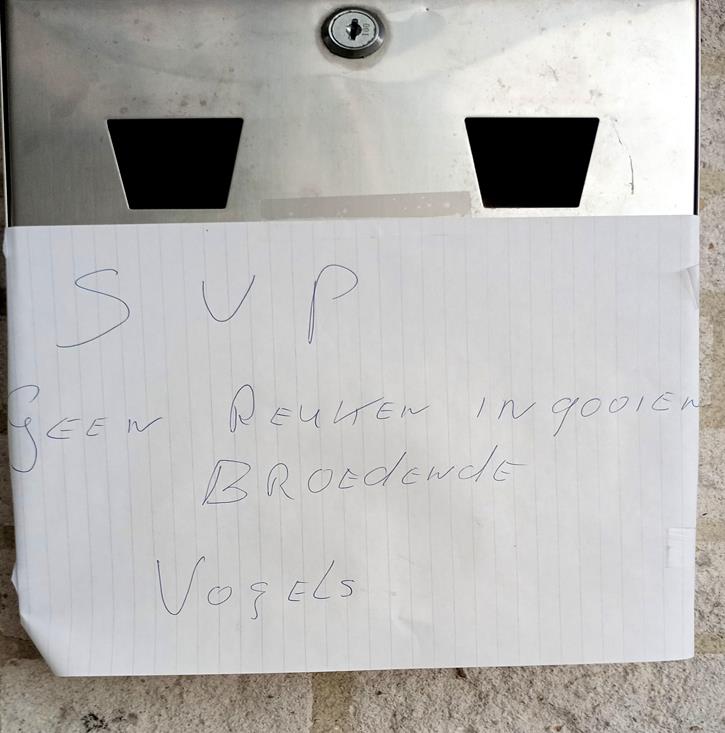 SVP
GEEN REUKEN INGOOIEN
BROEDENDE
VOGELS